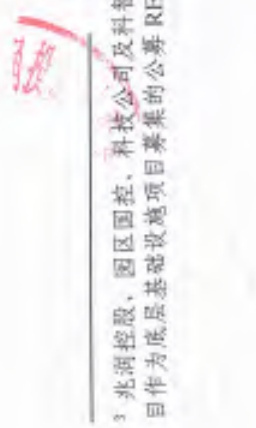 ³ 兆润控股、园区国控、科技公司及科智
目作为底层基础设施项目募集的公募 RE